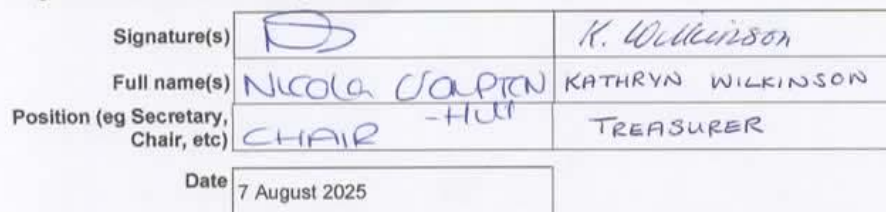 Signature(s) K. Wilkinson
Full name(s) Nicola KATHRYN WILKINSON
Position (eg Secretary, -Hull
Chair, etc) CHAIR TREASURER
Date 7 August 2025